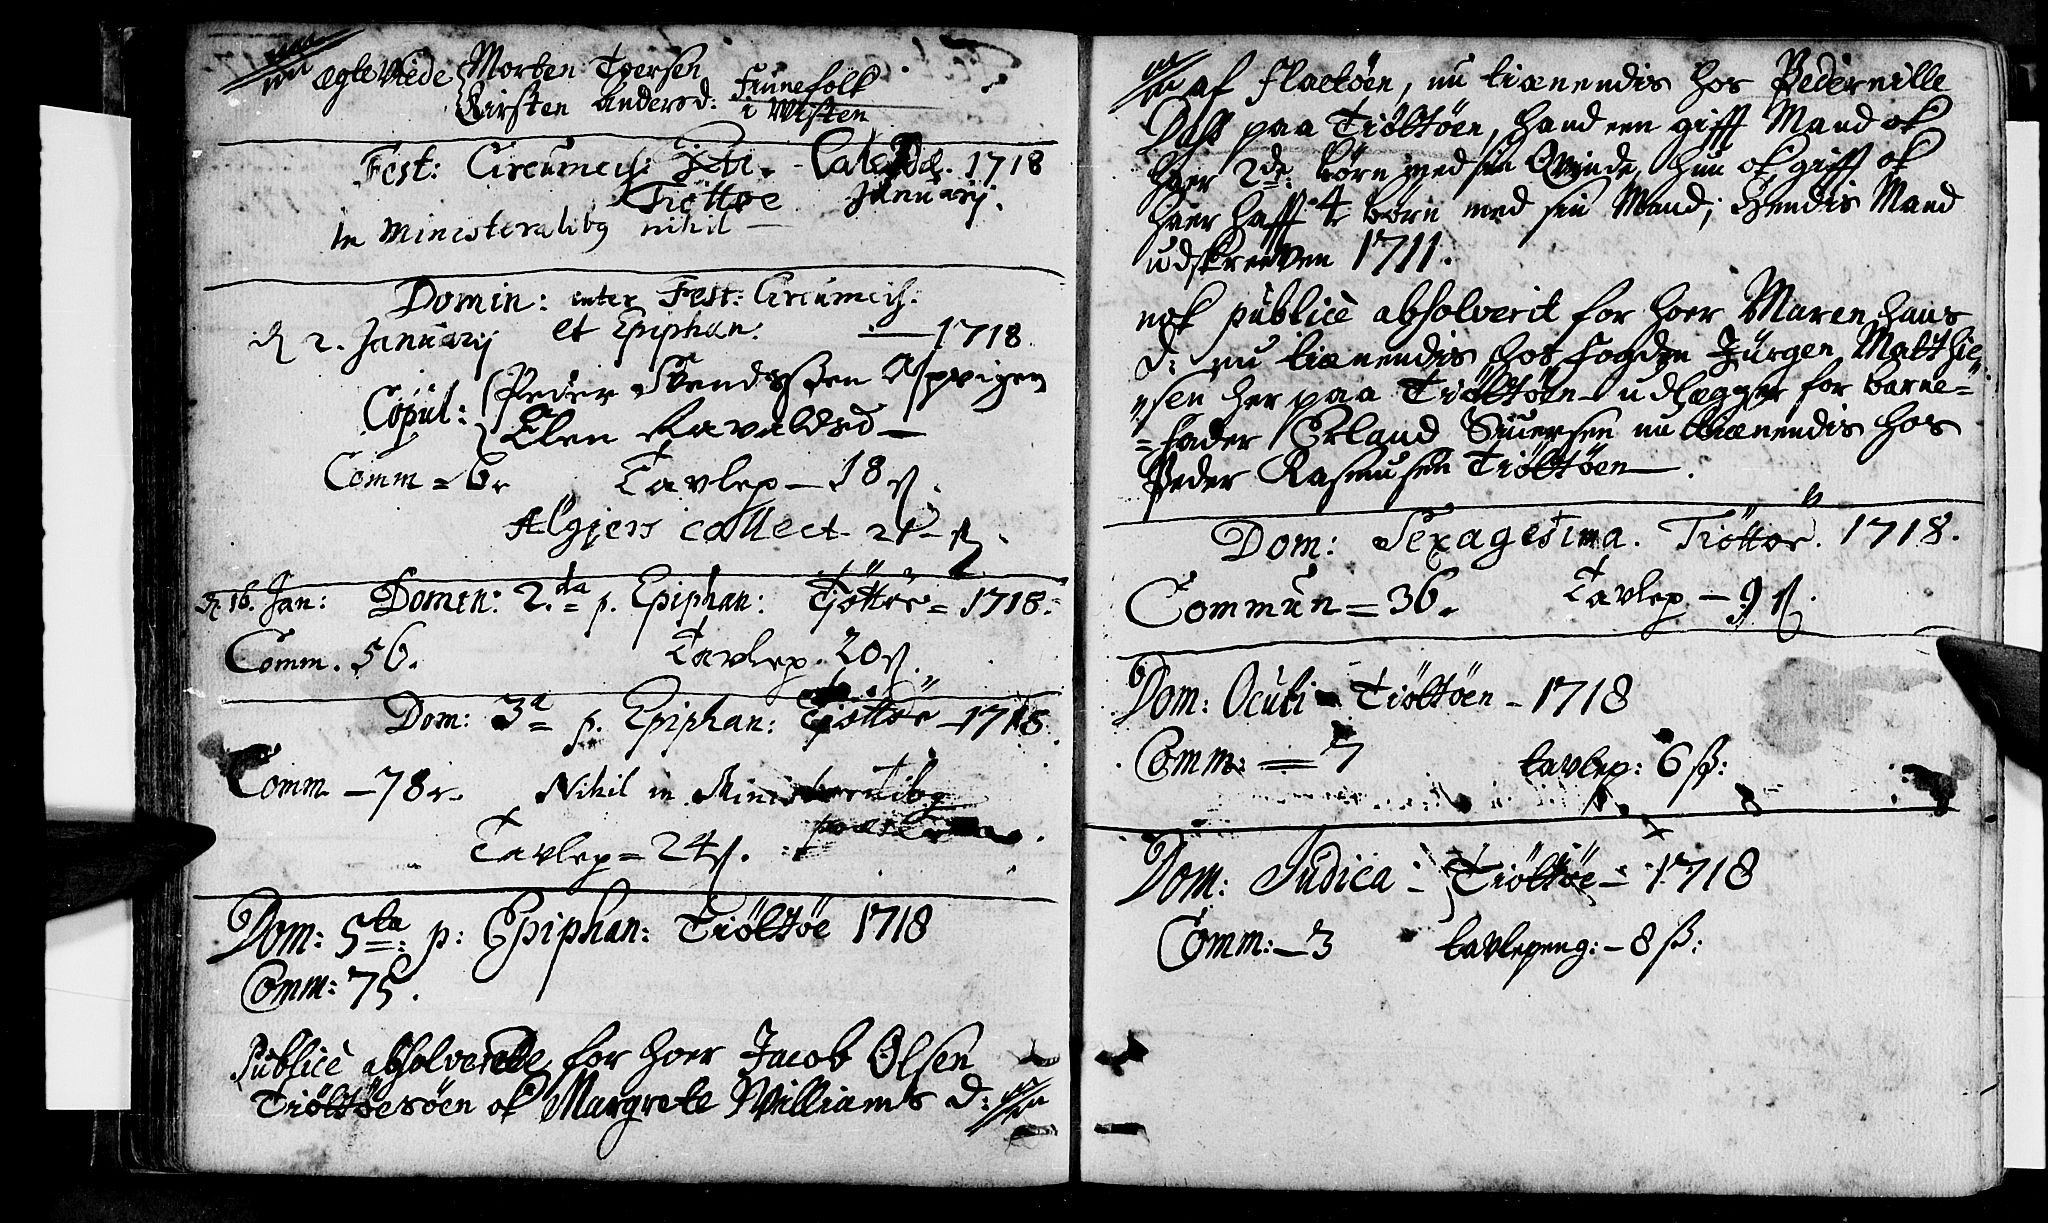 ægte Viede Morten Toersen Finnefolk
Kirsten Andersd: i Visten
Fest: Circumcis: Xti. - Calend. 1718
Tiøttøe Januarij.
In Ministeralibg nihil —
Domin: inter Fest: Circumcis:
d 2. Januarij et Epiphan. — 1718
Copul: Peder Svendssen Aspvigen
Elen Havaldsd —
Comm = 6. Tavlep — 18 ß.
Algiers collect - 21 - ß.
d. 16. Jan: Domin: 2.da p. Epiphan: Tiøttøe = 1718.
Comm. 56. Tavlep. 20 ß.
Dom: 3a p. Epiphan: Tiøttøe — 1718.
Comm — 78. Nihil in Ministeralibg
Tavlep = 24 ß.
Dom: 5ta: p: Epiphan: Tiøltøe 1718
Comm: 75.
Publicè absolverede for hoer Jacob Olsen
Tiøltøesøen ok Margrete Williams d:
af Flaetøen, nu tienendis hos Pedernille
Dass paa Tiøltøen, hand een gifft Mand ok
haer 2de: børn med sin Qvinde, hun ok gifft ok
haer hafft 4 børn med sin Mand; hendis Mand
udskreeven 1711.
nok publicè absolverit for hoer Maren Hans
d: nu tienendis hos Fogden Jürgen Matthie
sen her paa Tiøltøen - udlegger for barne=
=fader Erland Siuersen nu tienendis hos
Peder Rasmusen Tiøltøen —.
Dom: Sexagesima. Tiøttøe. 1718.
Commun = 36. Tavlep — 9 ß.
Dom: Oculi - Tiøltøen - 1718
Comm: = 7 tavlep: 6 ß:
Dom: Judica - Tiøltøe - 1718
Comm: — 3 tavlepeng: — 8 ß: